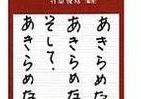 あきらめた
あきらめた
そして、
あきらめた